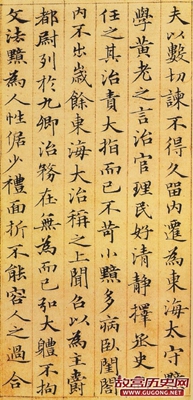 夫以數切諫不得久留內遷為東海太守黯
學黃老之言治官理民好清静擇丞史
任之其治責大指而已不苛小黯多病臥閨閤
內不出歲餘東海大治稱之上聞召以為主爵
都尉列於九卿治務在無為而已弘大體不拘
文法黯為人性倨少禮面折不能容人之過合
故宫历史网